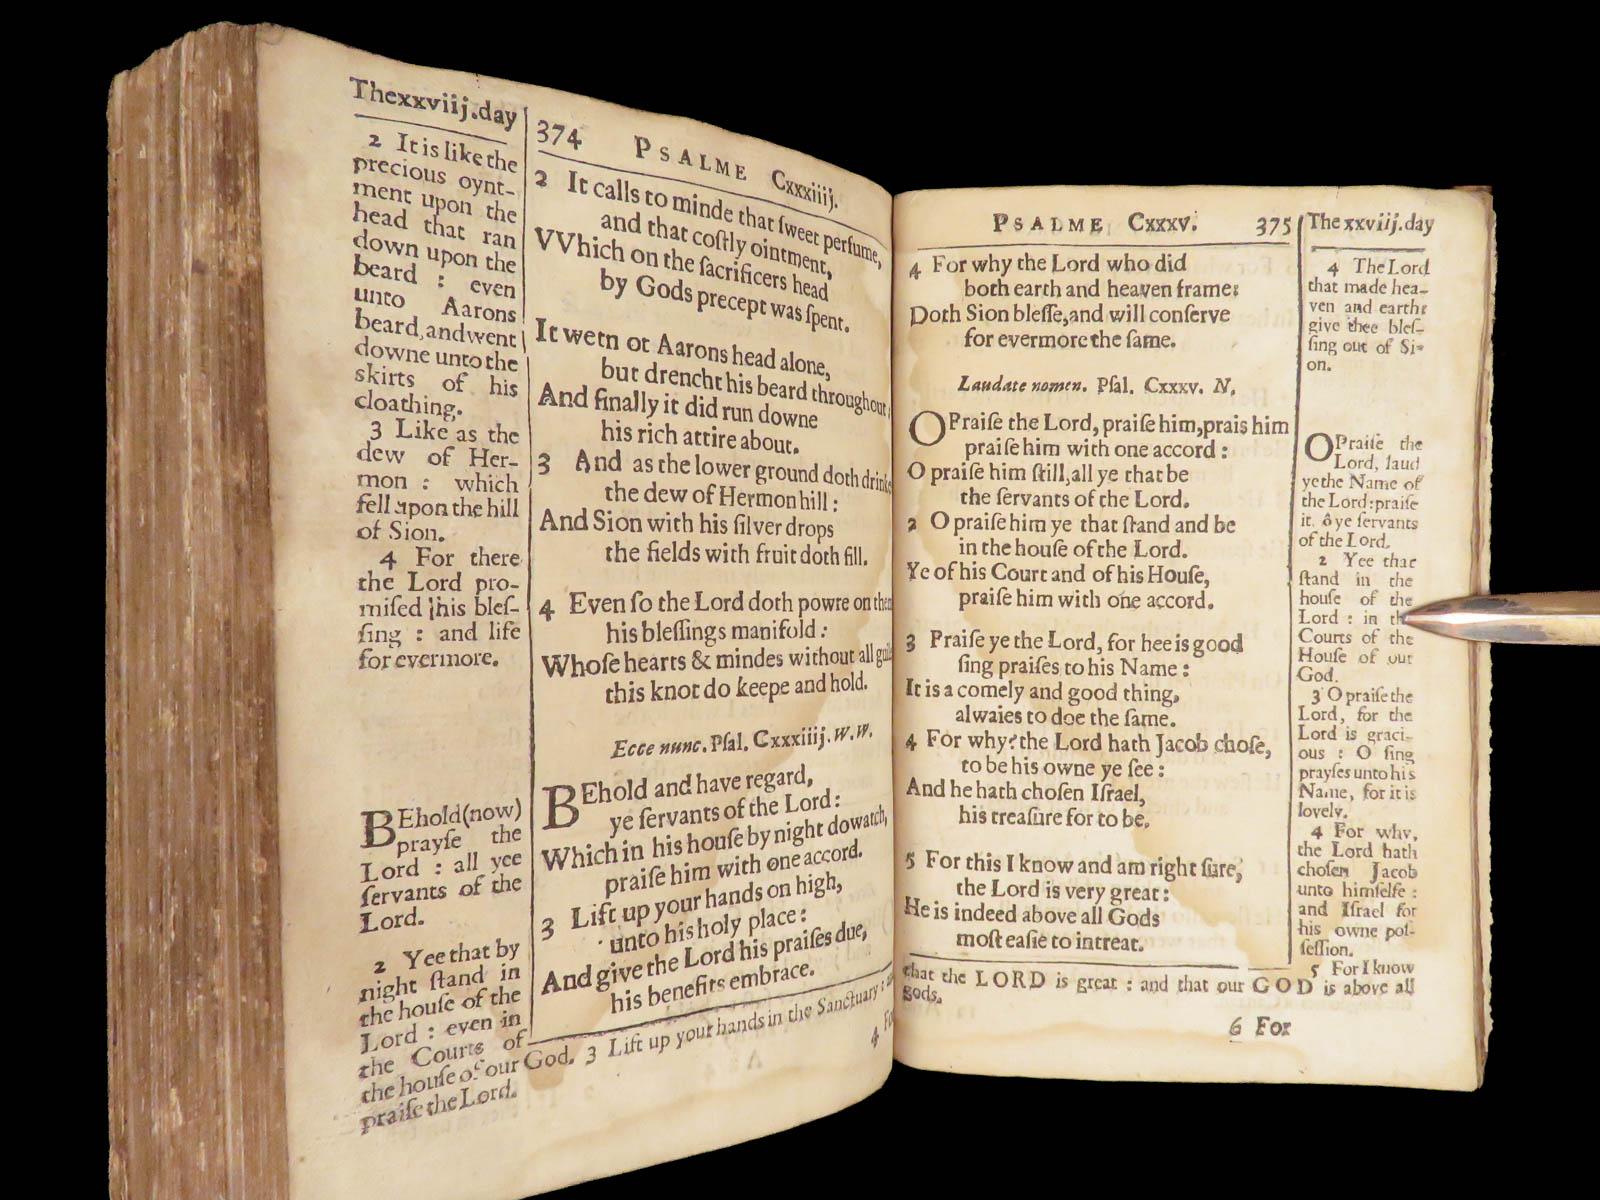 The xxviij.day
2 It is like the
precious oynt-
ment upon the
head that ran
down upon the
beard : even
unto Aarons
beard, and went
downe unto the
skirts of his
cloathing.
3 Like as the
dew of Her-
mon : which
fell upon the hill
of Sion.
4 For there
the Lord pro-
miſed his bleſ-
ſing : and life
for evermore.
BEhold(now)
prayſe the
Lord : all yee
ſervants of the
Lord.
2 Yee that by
night ſtand in
the houſe of the
Lord : even in
the Courts of
the houſe of our God. 3 Lift up your hands in the Sanctuary :
praiſe the Lord.
374 PSALME Cxxxiiij.
2 It calls to minde that ſweet perfume,
and that coſtly ointment,
VVhich on the ſacrificers head
by Gods precept was ſpent.
It wetn ot Aarons head alone,
but drencht his beard throughout:
And finally it did run downe
his rich attire about.
3 And as the lower ground doth drinke
the dew of Hermon hill :
And Sion with his ſilver drops
the fields with fruit doth fill.
4 Even ſo the Lord doth powre on
his bleſſings manifold :
Whoſe hearts & mindes without all
this knot do keepe and hold.
Ecce nunc. Pſal. Cxxxiiij. W. W.
BEhold and have regard,
ye ſervants of the Lord :
Which in his houſe by night do watch,
praiſe him with one accord.
3 Lift up your hands on high,
unto his holy place :
And give the Lord his praiſes due,
his benefits embrace.
4
PSALME Cxxxv. 375
4 For why the Lord who did
both earth and heaven frame:
Doth Sion bleſſe, and will conſerve
for evermore the ſame.
Laudate nomen. Pſal. Cxxxv. N.
O Praiſe the Lord, praiſe him, prais him
praiſe him with one accord :
O praiſe him ſtill, all ye that be
the ſervants of the Lord.
2 O praiſe him ye that ſtand and be
in the houſe of the Lord.
Ye of his Court and of his Houſe,
praiſe him with one accord.
3 Praiſe ye the Lord, for hee is good
ſing praiſes to his Name :
It is a comely and good thing,
alwaies to doe the ſame.
4 For why? the Lord hath Jacob choſe,
to be his owne ye ſee :
And he hath choſen Iſrael,
his treaſure for to be.
5 For this I know and am right ſure,
the Lord is very great :
He is indeed above all Gods
moſt eaſie to intreat.
The xxviij.day
4 The Lord
that made hea-
ven and earth:
give thee bleſ-
ſing out of Si-
on.
O Praiſe the
Lord, laud
ye the Name of
the Lord: praiſe
it, ô ye ſervants
of the Lord.
2 Yee that
ſtand in the
houſe of the
Lord : in the
Courts of the
Houſe of our
God.
3 O praiſe the
Lord, for the
Lord is graci-
ous : O ſing
prayſes unto his
Name, for it is
lovely.
4 For why,
the Lord hath
choſen Jacob
unto himſelfe :
and Iſrael for
his owne poſ-
ſeſſion.
5 For I know
that the LORD is great : and that our GOD is above all
gods.
6 For